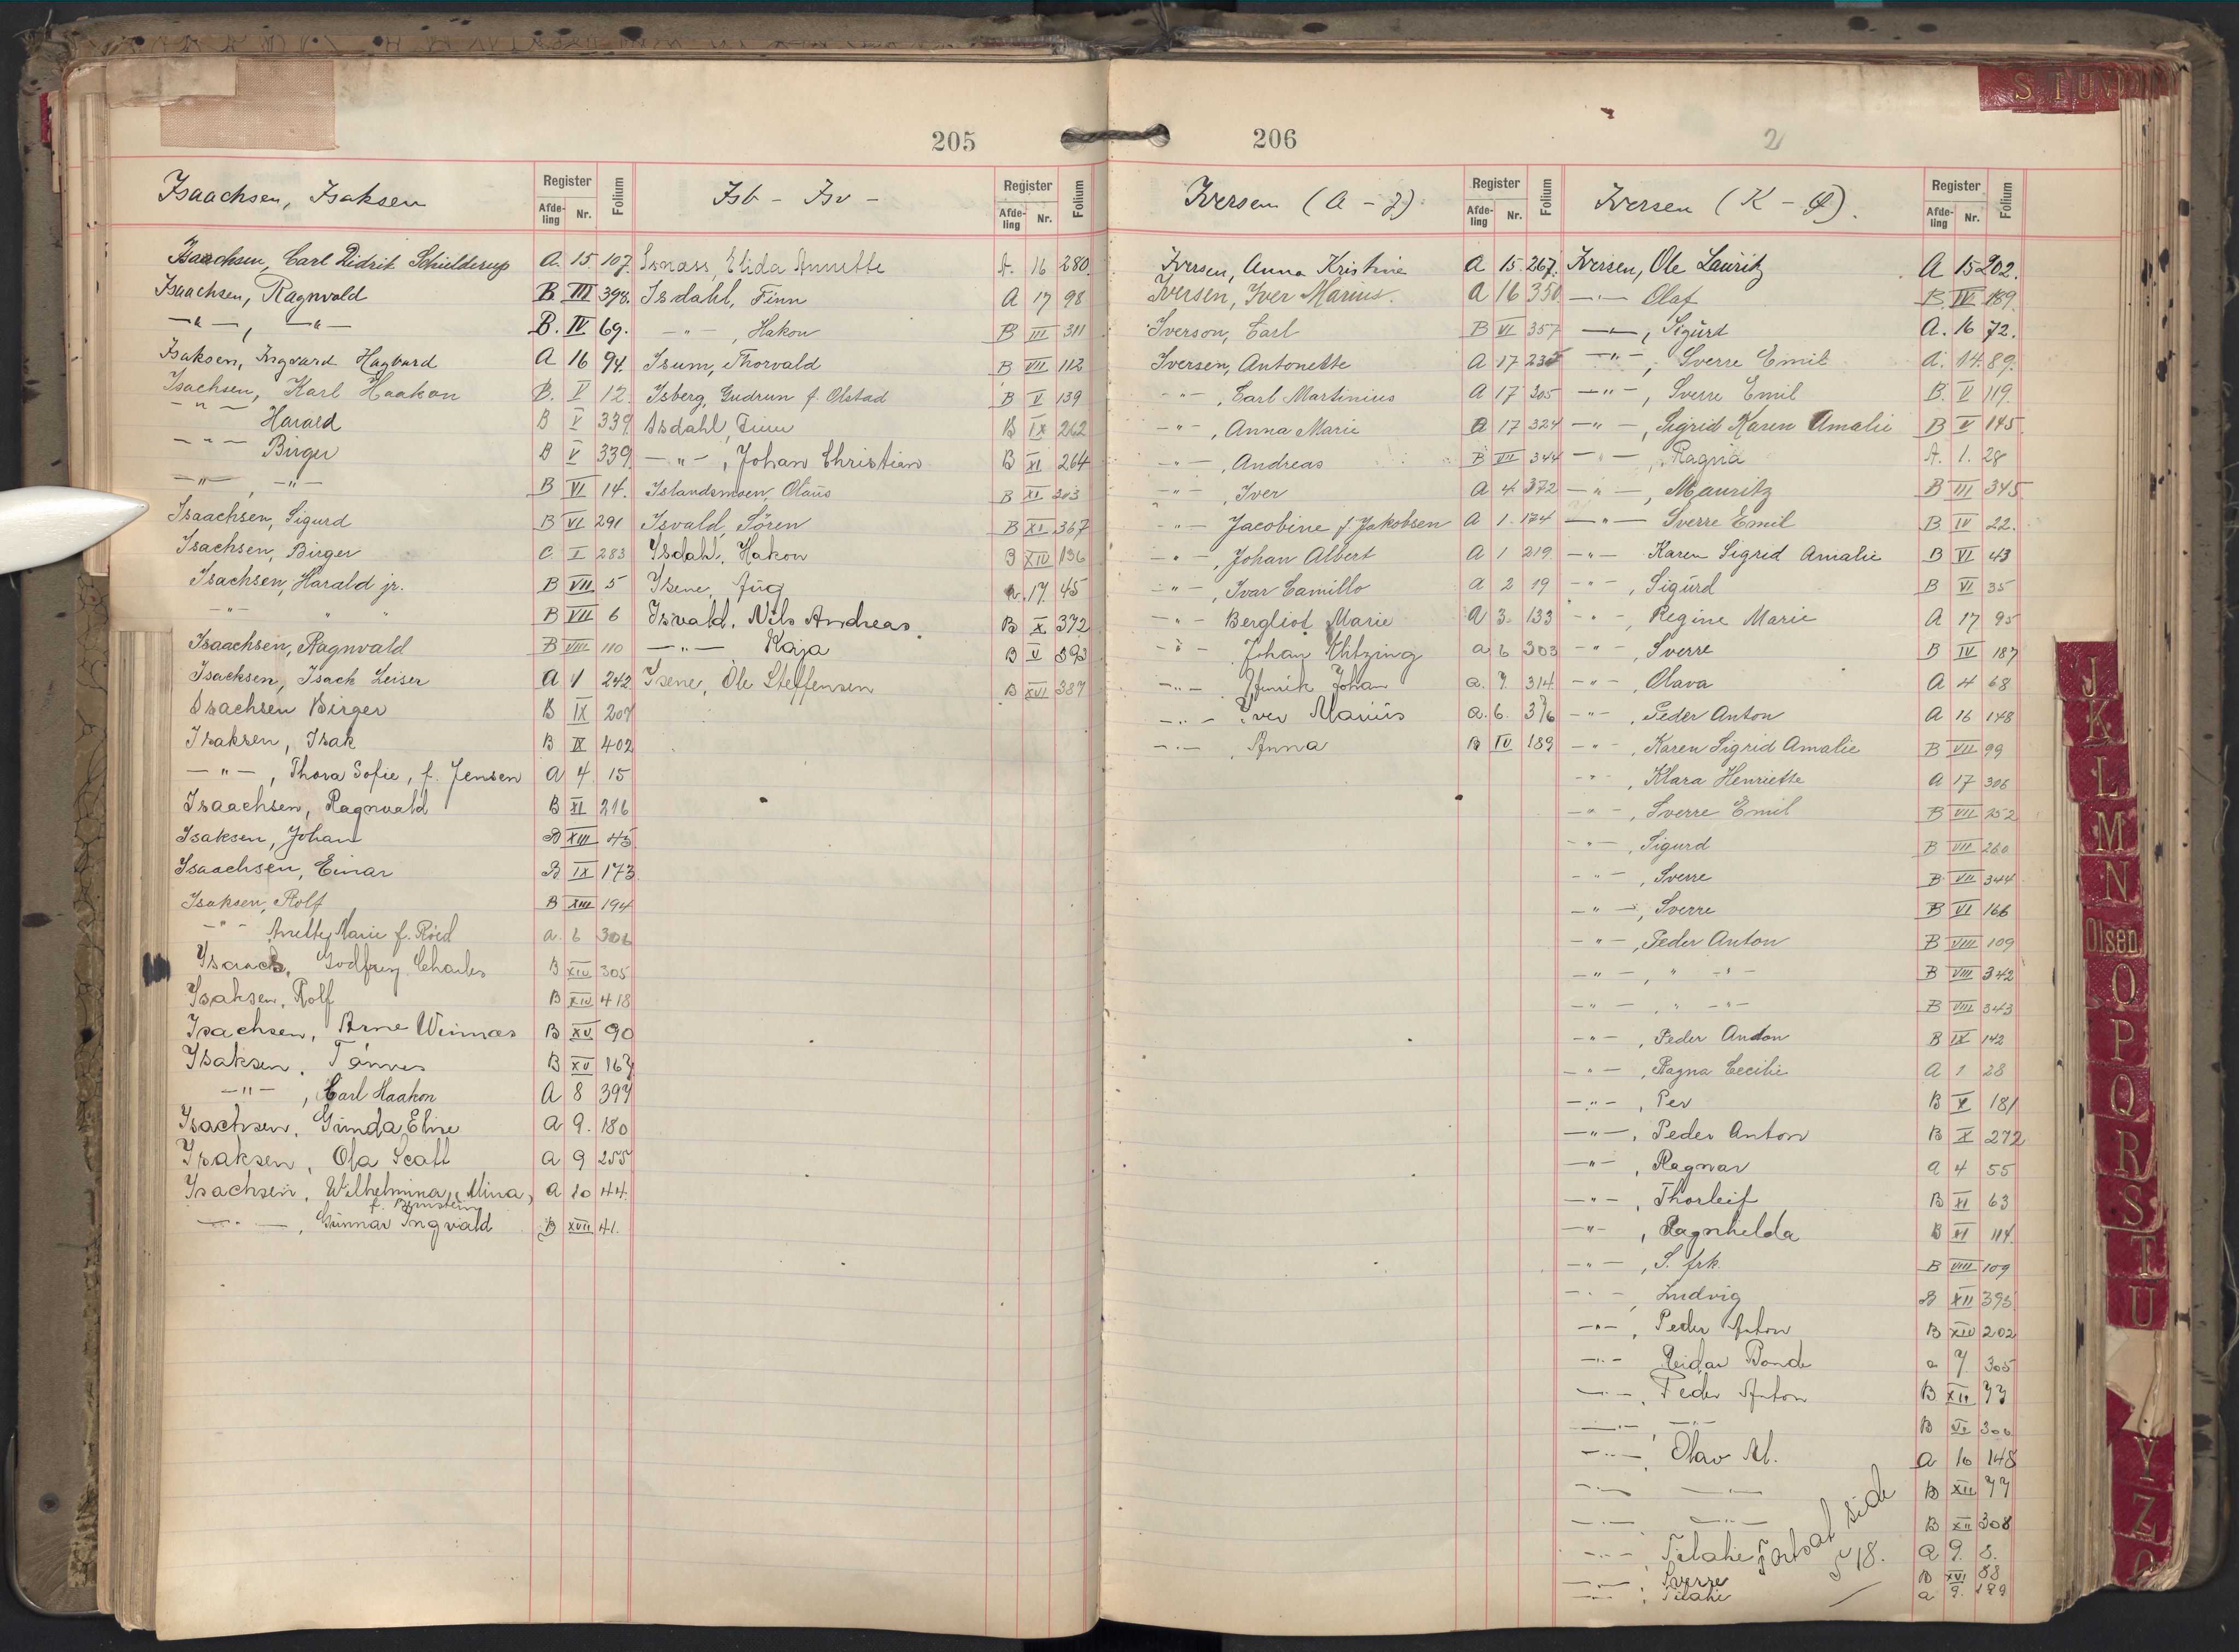 205
Isaachsen, Isaksen
Register
Afde-
ling
Nr.
Folium
Isaachsen, Carl Didrik Schielderup A. 15. 107.
Isaachsen, Ragnvald B III 398.
—"—, —"— B. IV 69.
Isaksen, Ingvard Hagbard A 16 94.
Isachsen, Karl Haakon B. V 12.
—"— Harald B V 339
—"— Birger B V 339
—"— —"— B VI 14.
Isaachsen, Sigurd B VI 291
Isachsen, Birger C. I 283
Isachsen, Harald jr. B VII 5
—"— " " B VII 6
Isaachsen, Ragnvald B VIII 110
Isacksen, Isack Leiser A 1 242
Isachsen Birger B IX 207
Isaksen, Isak B IX 402
—"—, Thora Sofie, f. Jensen A 4 15
Isaachsen, Ragnvald B XI 216
Isaksen, Johan B XIII 45
Isaachsen, Einar B IX 173
Isaksen, Rolf B XIII 194
—"— Anette Marie f. Röed a. 6 306
Isaacs, Godfrey Charles B XIV 305
Isaksen, Rolf B XIV 418
Isachsen, Arne Wennæs B XV 90
Isaksen, B XV 167
—"—, Carl Haakon A 8 397
Isachsen, Gunda Eline A 9. 180
Isaksen, Ola Scott A 9 255
Isachsen, Wilhelmina, "Mina" A 10 44.
—"—, Gunnar Ingvald B XVII 41.
Isb - Isv -
Register
Afde-
ling
Nr.
Folium
Isnass, Elida Annette A. 16 280.
Isdahl, Finn A 17 98
—"—, Hakon B III 311
Isum, Thorvald B VII 112
Isberg, Gudrun f. Olstad B V 139
Isdahl, Finn B IX 262
—"—, Johan Christian B XI 264
Islandsmoen, Olaus B XI 303
Isvald, Sören B XI 367
Isdahl, Hakon B XIV 136
Isene, Jüg A. 17. 45
Isvald, Nils Andreas. B X 372
—"— Kaja B V 393
Isene, Ole Steffensen B XVI 387
206
2
Iversen (A - J).
Register
Afde-
ling
Nr.
Folium
Iversen, Anna Kristine A 15. 267.
Iversen, Iver Marius. A 16 350
Iverson, Earl B VI 357
Iversen, Antonette A 17 235
—"—, Carl Martinius A 17 305
—"—, Anna Marie A 17 324
—"—, Andreas B VII 344
—"—, Iver A 4 372
—"— Jacobine f. Jakobsen A 1. 174
—"—, Johan Albert A 1 219.
—"—, Ivar Camillo A 2 19
—"— Bergliot Marie A 3. 133
—"— Johan a 6 303
—"— Henrik Johan a. 7. 314.
—"— Iver Marius a. 6. 376
—"—, Anna B IV 189
Iversen (K - Ø).
Register
Afde-
ling
Nr.
Folium
Iversen, Ole Lauritz A 15 202.
—"— Olaf B. IV. 189.
—"—, Sigurd A. 16 72.
—"—, Sverre Emil A. 14. 89.
—"—, Sverre Emil B. V 119.
—"—, Sigrid Karen Amalie B V 145.
—"—, Ragna A. 1. 28
—"—, Mauritz B III 345
—"— Sverre Emil B IV 22.
—"— Karen Sigrid Amalie B VI 43
—"—, Sigurd B VI 35
—"—, Regine Marie A 17 95
—"—, Sverre B IV 187
—"—, Olava A 4 68
—"—, Peder Anton A 16 148
—"—, Karen Sigrid Amalie B VII 99
—"—, Klara Henriette A 17 306
—"—, Sverre Emil B VII 252
—"—, Sigurd B VII 260
—"—, Sverre B VII 344
—"—, Sverre B VI 166
—"—, Peder Anton B VIII 109
—"—, " —"— B VIII 342
—"—, " —"— B VIII 343
—"—, Peder Anton B IX 142
—"—, Ragna Cecilie A 1 28
—"—, Per B X 181
—"—, Peder Anton B X 272
—"—, Ragnar A 4 55
—"—, Thorleif B XI 63
—"—, Ragnhilda B XI 114.
—"—, S. frk. B VIII 109
—"—, Ludvig B XII 395
—"—, Peder Anton B XIV 202
—"— Reidar Bonde a 7. 305
—"—, Peder Anton B XII 77
—"—, —"— B 300
—"—, Olav M. A 10 148
—"— —"— B XII 77
—"— —"— B XII 308
—"— A 9. 8.
—"—, Sverre B XVI 88
—"—, a 9. 189
Fortsat side
518.
S T U V
J
K
L
M
N
Olsen
O
P
Q
R
S
T
U
Y
Z